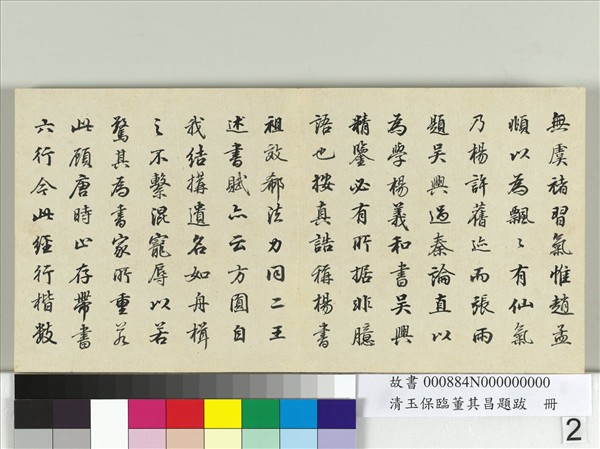 無虞褚習氣惟趙孟
頫以為飄〻有仙氣
乃楊許舊迹而張雨
題吳興過秦論直以
為學楊義和書吳興
精鑒必有所據非臆
語也按真誥稱楊書
祖效郗法力同二王
述書賦亦云方圓自
我結搆遺名如舟楫
之不繫混寵辱以若
驚其為書家所重若
此顧唐時止存帶書
六行今此經行楷數
故書 000884N000000000
清玉保臨董其昌題跋 冊
2